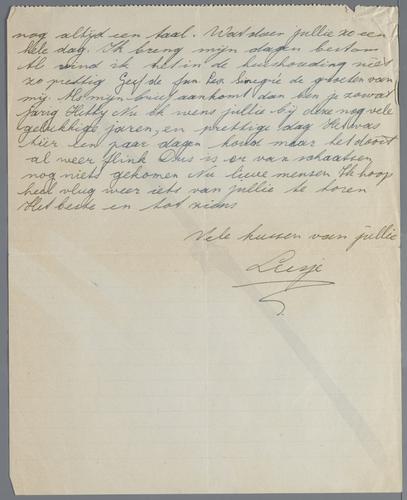 nog altijd een taal. Wat doen jullie zo een
hele dag. Ik breng mijn dagen best om
Al vind ik het in de huishouding niet
zo prettig Geef de fam de groeten van
mij. Als mijn brief aankomt dan ben je zowat
jarig Kitty Nu ik wens jullie bij deze nog vele
gelukkige jaren, en prettige dag Het was
hier een paar dagen koud maar het dooit
al weer flink Dus is er van schaatsen
nog niets gekomen Nu lieve mensen Ik hoop
heel vlug weer iets van jullie te horen
Het beste en tot ziens
Vele kussen van jullie
Leesje